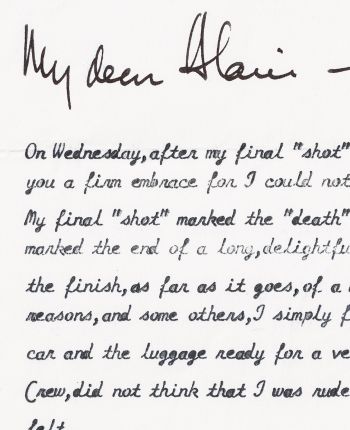 My dear Alain –
On Wednesday, after my final "shot"
you a firm embrace for I could not
My final "shot" marked the "death"
marked the end of a long, delightfu
the finish, as far as it goes, of a
reasons, and some others, I simply f
car and the luggage ready for a ve
Crew, did not think that I was rude
felt